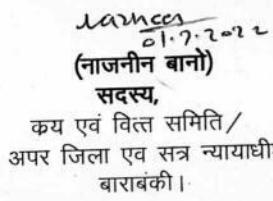 01.7.2022
(नाजनीन बानो)
सदस्य,
कय एवं वित्त समिति/
अपर जिला एव सत्र न्यायाधी
बाराबंकी।